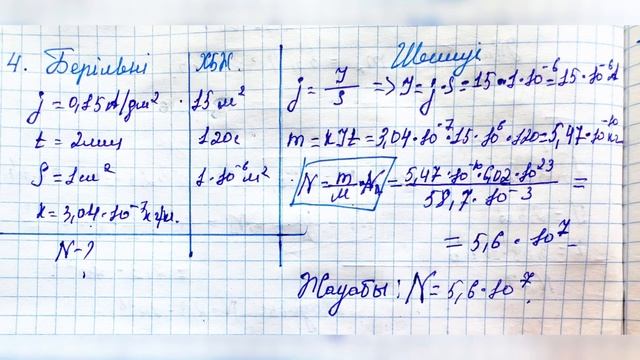 4. Берілгені ХБЖ.
j = 0,15 А/дм² 15 м²
t = 2 мин 120с
S = 1 см² 1·10⁻⁶ м²
k = 3,04·10⁻⁷ кг/кл.
N-?
Шешуі
j = I/S => I = j·S = 15·1·10⁻⁶ = 15·10⁻⁶ А
m = kIt = 3,04·10⁻⁷·15·10⁶·120 = 5,47·10⁻¹⁰ кг
N = m/M·Nₐ = 5,47·10⁻¹⁰·6,02·10²³ / 58,7·10⁻³ =
= 5,6·10⁷
Жауабы: N = 5,6·10⁷.